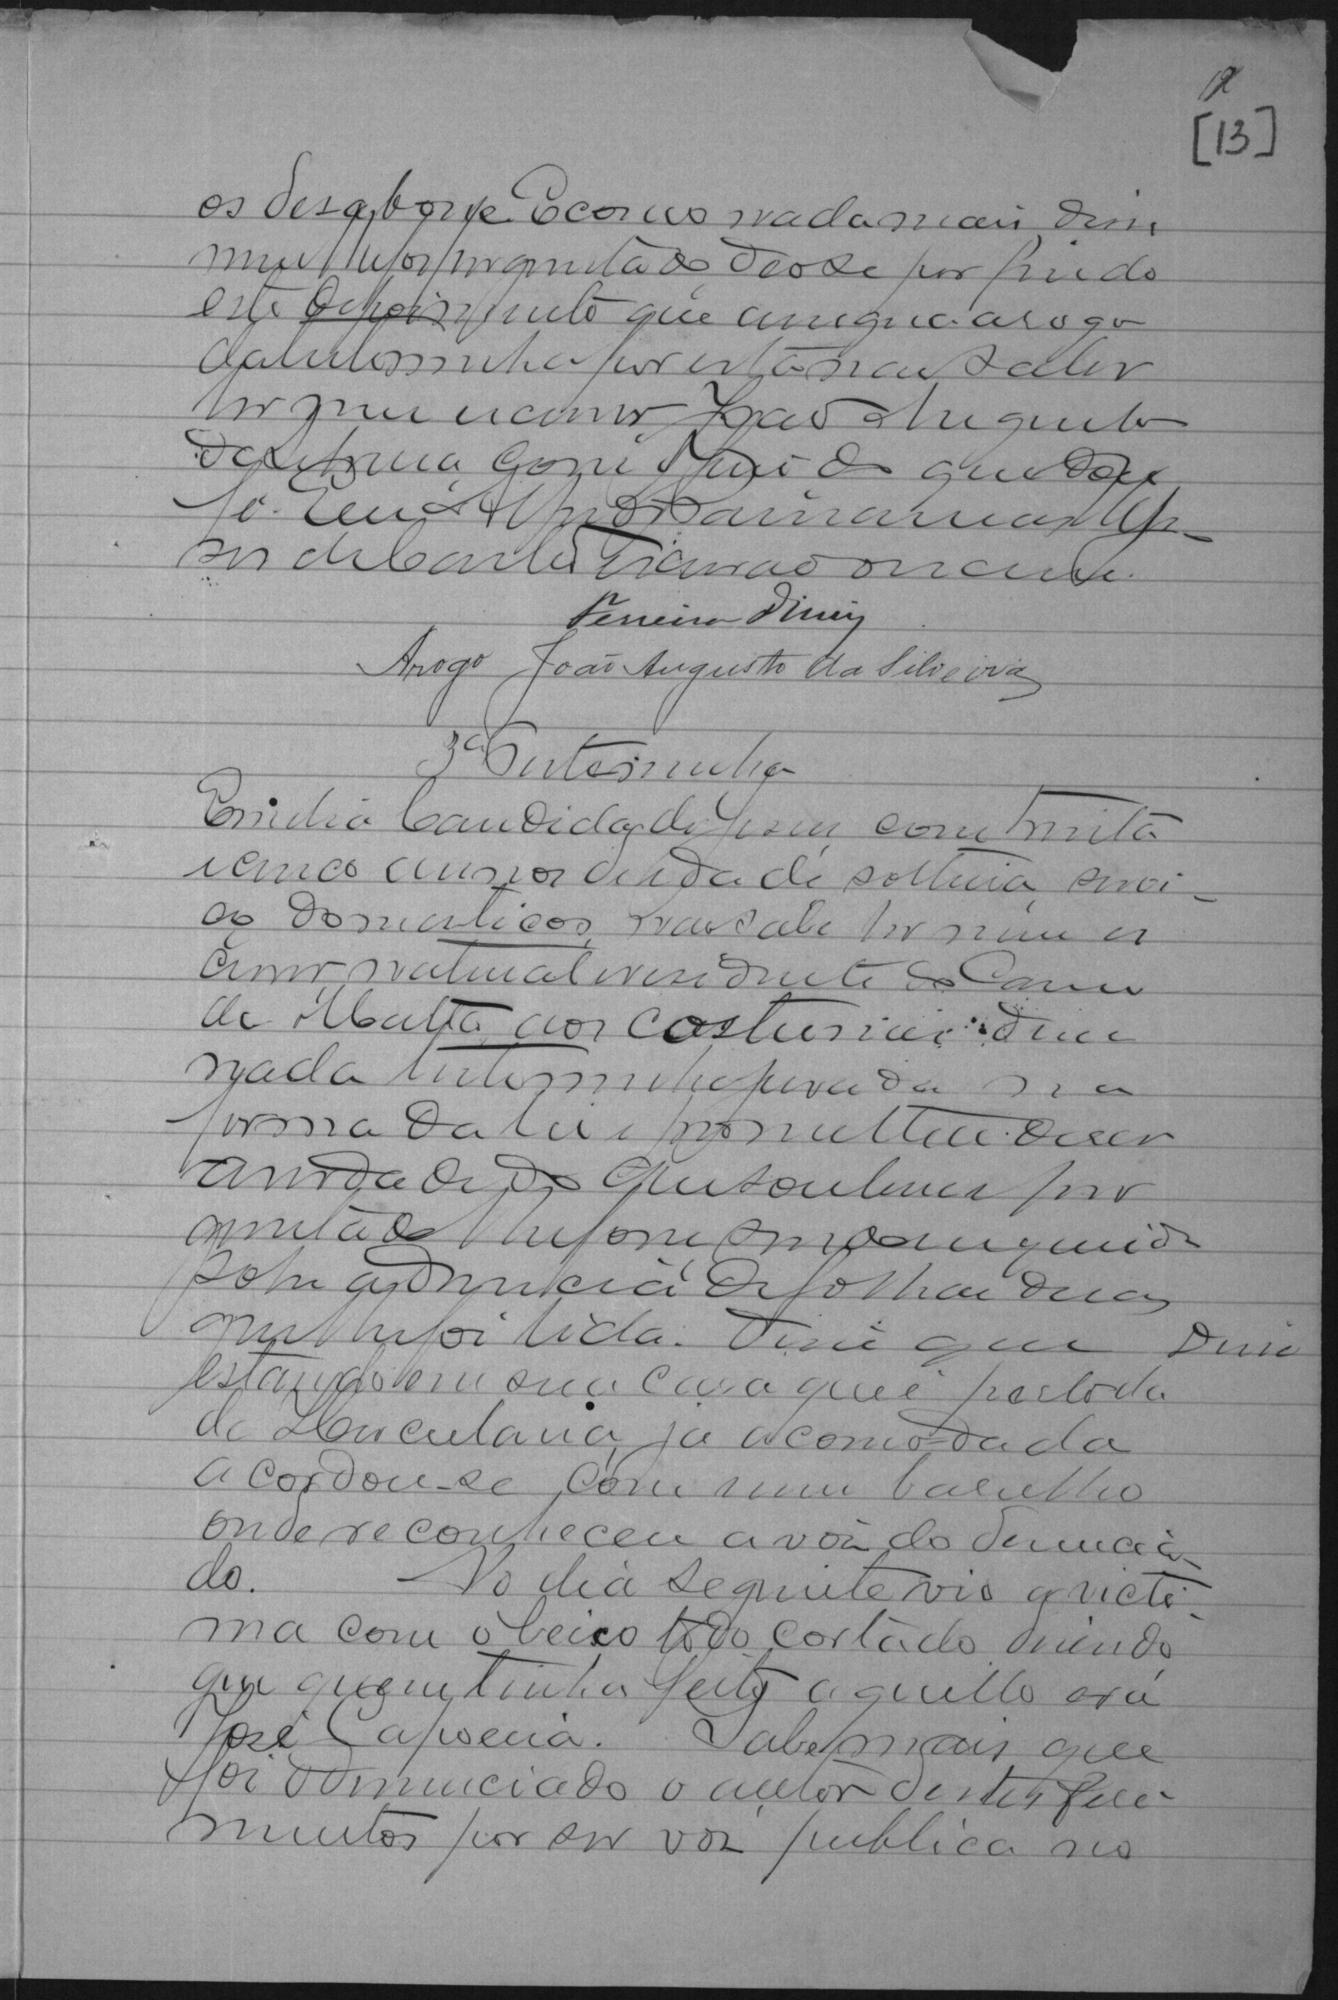 12
[13]
os desabonje. E como nada mais disse
nem lhe foi perguntado deose por findo
este depoimento que assigna a rogo
da testesmunha por esta não saber
ler nem escrever João Augusto
da Silveira com o Juis do que dou
fé. Eu
escrivão o escrevi.
Ferreira Diniz
Arogo João Augusto da Silveira
3ª Testemunha
Emilia Candida de Jesus, com trinta
e cinco annos de idade, solteira, servi-
ço domesticos, não sabe ler nem es
crever, natural e residente do Carmo
da Matta, aos costumes disse
nada. Testemunha jurada na
forma da lei e prometteu diser
a verdade do que soubesse e per
guntado lhe fosse, sendo inquirida
sobre a denuncia de folhas duas
que lhe foi lida. Disse que Disse
estando em sua casa que é perto da
de Herculana, já acomodada
acordou-se com um barulho
onde reconheceu a voz do denuncia-
do. No dia seguinte vio a victi-
ma com o beiço todo cortado disendo
que quem tinha feito aquillo era
José Capoeira. Sabe mais que
foi denunciado o autor destes feri
mentos por ser voz publica no